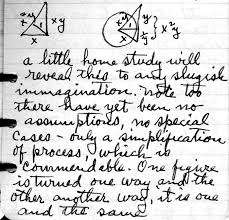 x y
x
x²y
x
a little home study will
reveal this to any slugish
immagination. note too
there have yet been no
assumptions, no special
cases - only a simplification
of process, which is
commendable. One figure
is turned one way and the
other another way, it is one
and the same